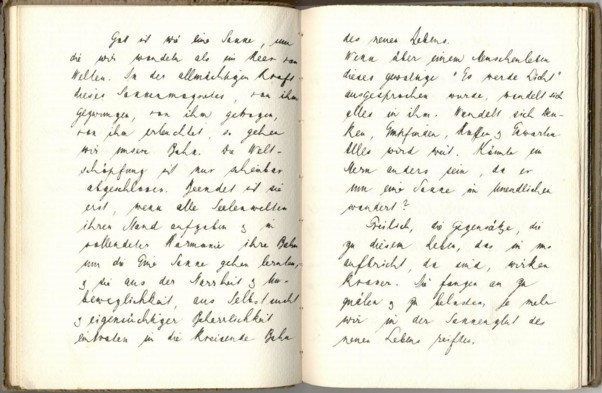 Gott ist wie eine Sonne, um
die wir wandeln als ein Heer von
Welten. In der allmächtigen Kraft
dieses Sonnenmagnetes, von ihm
gezwungen, von ihm getragen,
von ihm erleuchtet, so gehen
wir unsere Bahn. Die Welt-
schöpfung ist nur scheinbar
abgeschlossen. Beendet ist sie
erst, wenn alle Seelenwelten
ihren Stand aufgeben & in
vollendeter Harmonie ihre Bahn
um die Eine Sonne gehen lernten,
& sie aus der Starrheit & Un-
beweglichkeit, aus Selbstsucht
& eigensüchtiger Beharrlichkeit
eintraten in die kreisende Bahn
des neuen Lebens.
Wenn über einem Menschenleben
dieses gewaltige "Es werde Licht"
ausgesprochen wurde, wandelt sich
alles in ihm. Wandelt sich Den-
ken, Empfinden, Hoffen & Erwarten
Alles wird weit. Könnte ein
Stern anders sein, da er
um eine Sonne im Unendlichen
wandert?
Freilich, die Gegensätze, die
zu diesem Leben, das in uns
aufbricht, da sind, wirken
krasser. Sie fangen an zu
quälen & zu belasten, je mehr
wir in der Sonnenglut des
neuen Lebens reiften.